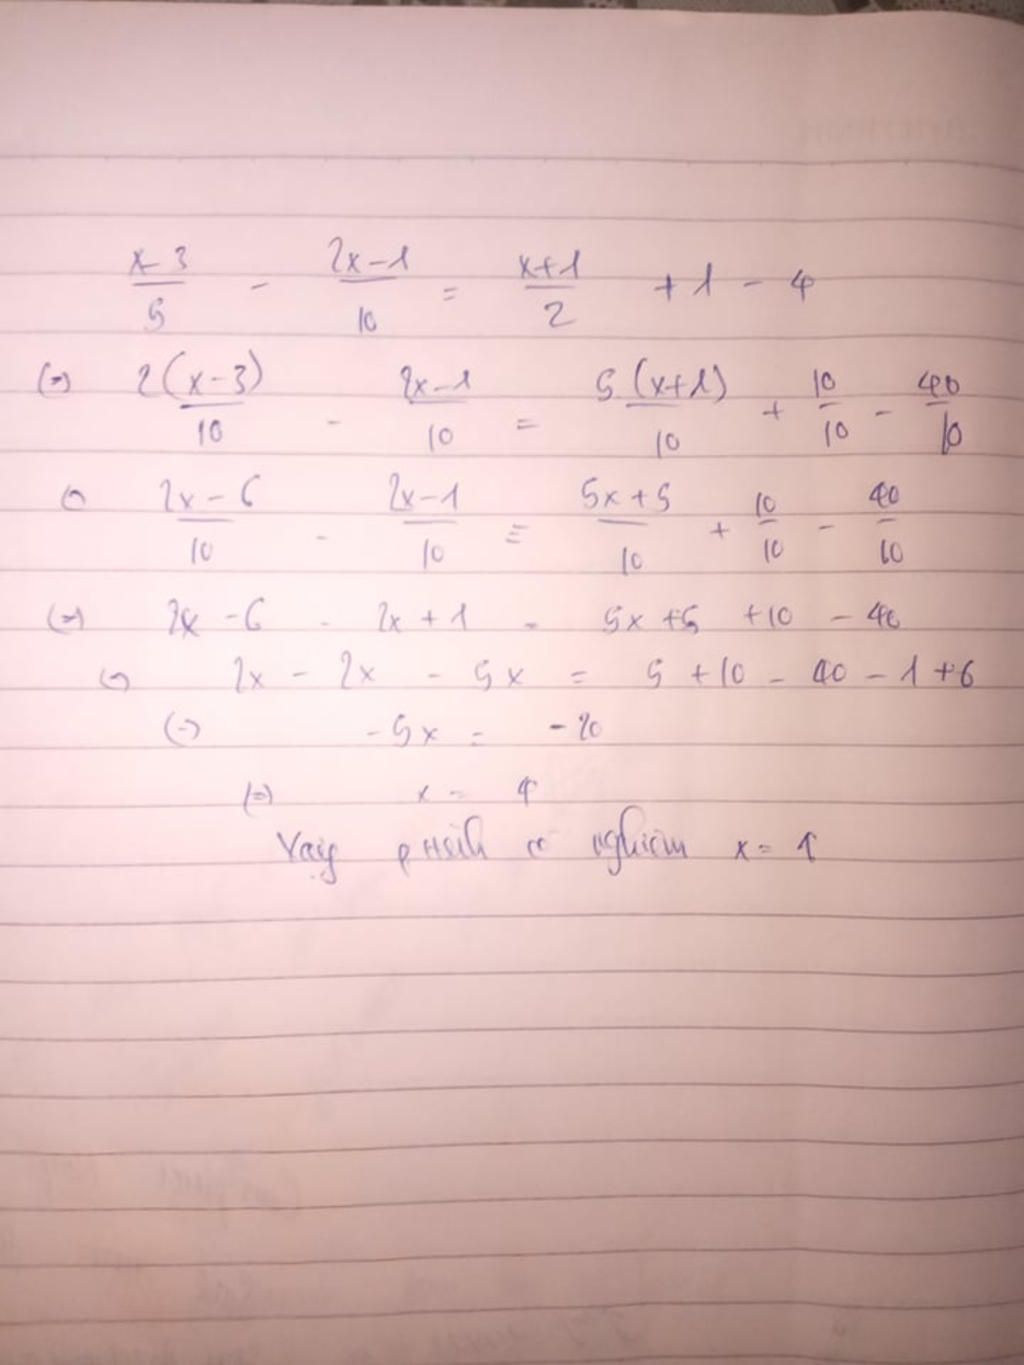 x-3/5 - 2x-1/10 = x+1/2 + 1 - 4
(=) 2(x-3)/10 - 2x-1/10 = 5(x+1)/10 + 10/10 - 40/10
(=) 2x-6/10 - 2x-1/10 = 5x+5/10 + 10/10 - 40/10
(=) 2x-6 - 2x+1 = 5x+5 +10 - 40
(=) 2x - 2x - 5x = 5 + 10 - 40 - 1 + 6
(=) -5x = -20
(=) x = 4
Vậy có nghiệm x = 4